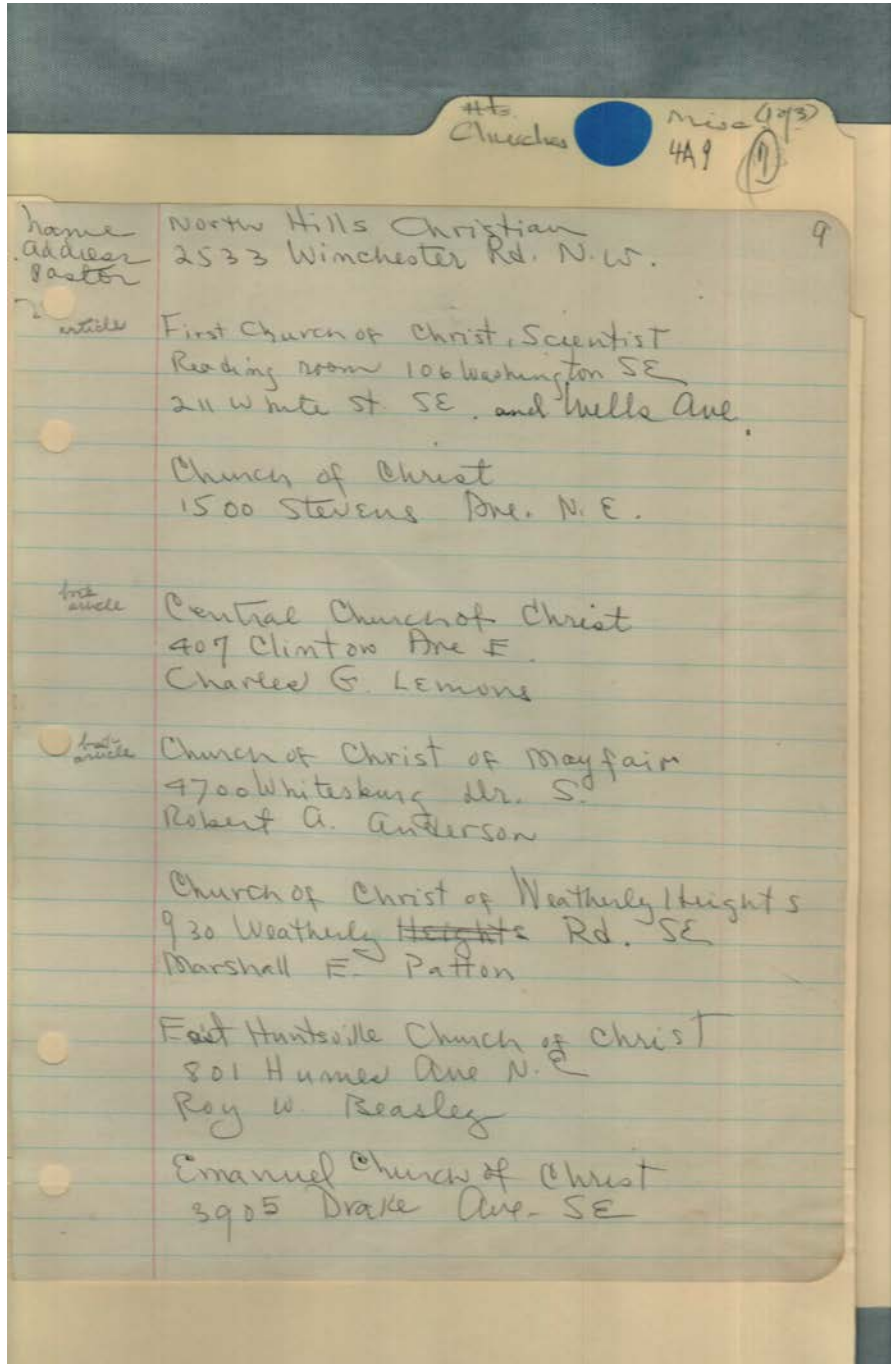 Hts. Misc (1 of 3)
Churches 4A9 (7)
9
name North Hills Christian
address 2533 Winchester Rd. N.W.
pastor
article First Church of Christ, Scientist
Reading room 106 Washington SE
211 White St. SE. and Wells Ave.
Church of Christ
1500 Stevens Ave. N.E.
article Central Church of Christ
407 Clinton Ave E.
Charles G. Lemons
article Church of Christ of Mayfair
4700 Whitesburg Dr. S.
Robert A. Anderson
Church of Christ of Weatherly Heights
930 Weatherly Heights Rd. SE
Marshall E. Patton
East Huntsville Church of Christ
801 Humes Ave N.E
Roy W. Beasley
Emanuel Church of Christ
3905 Drake Ave. SE